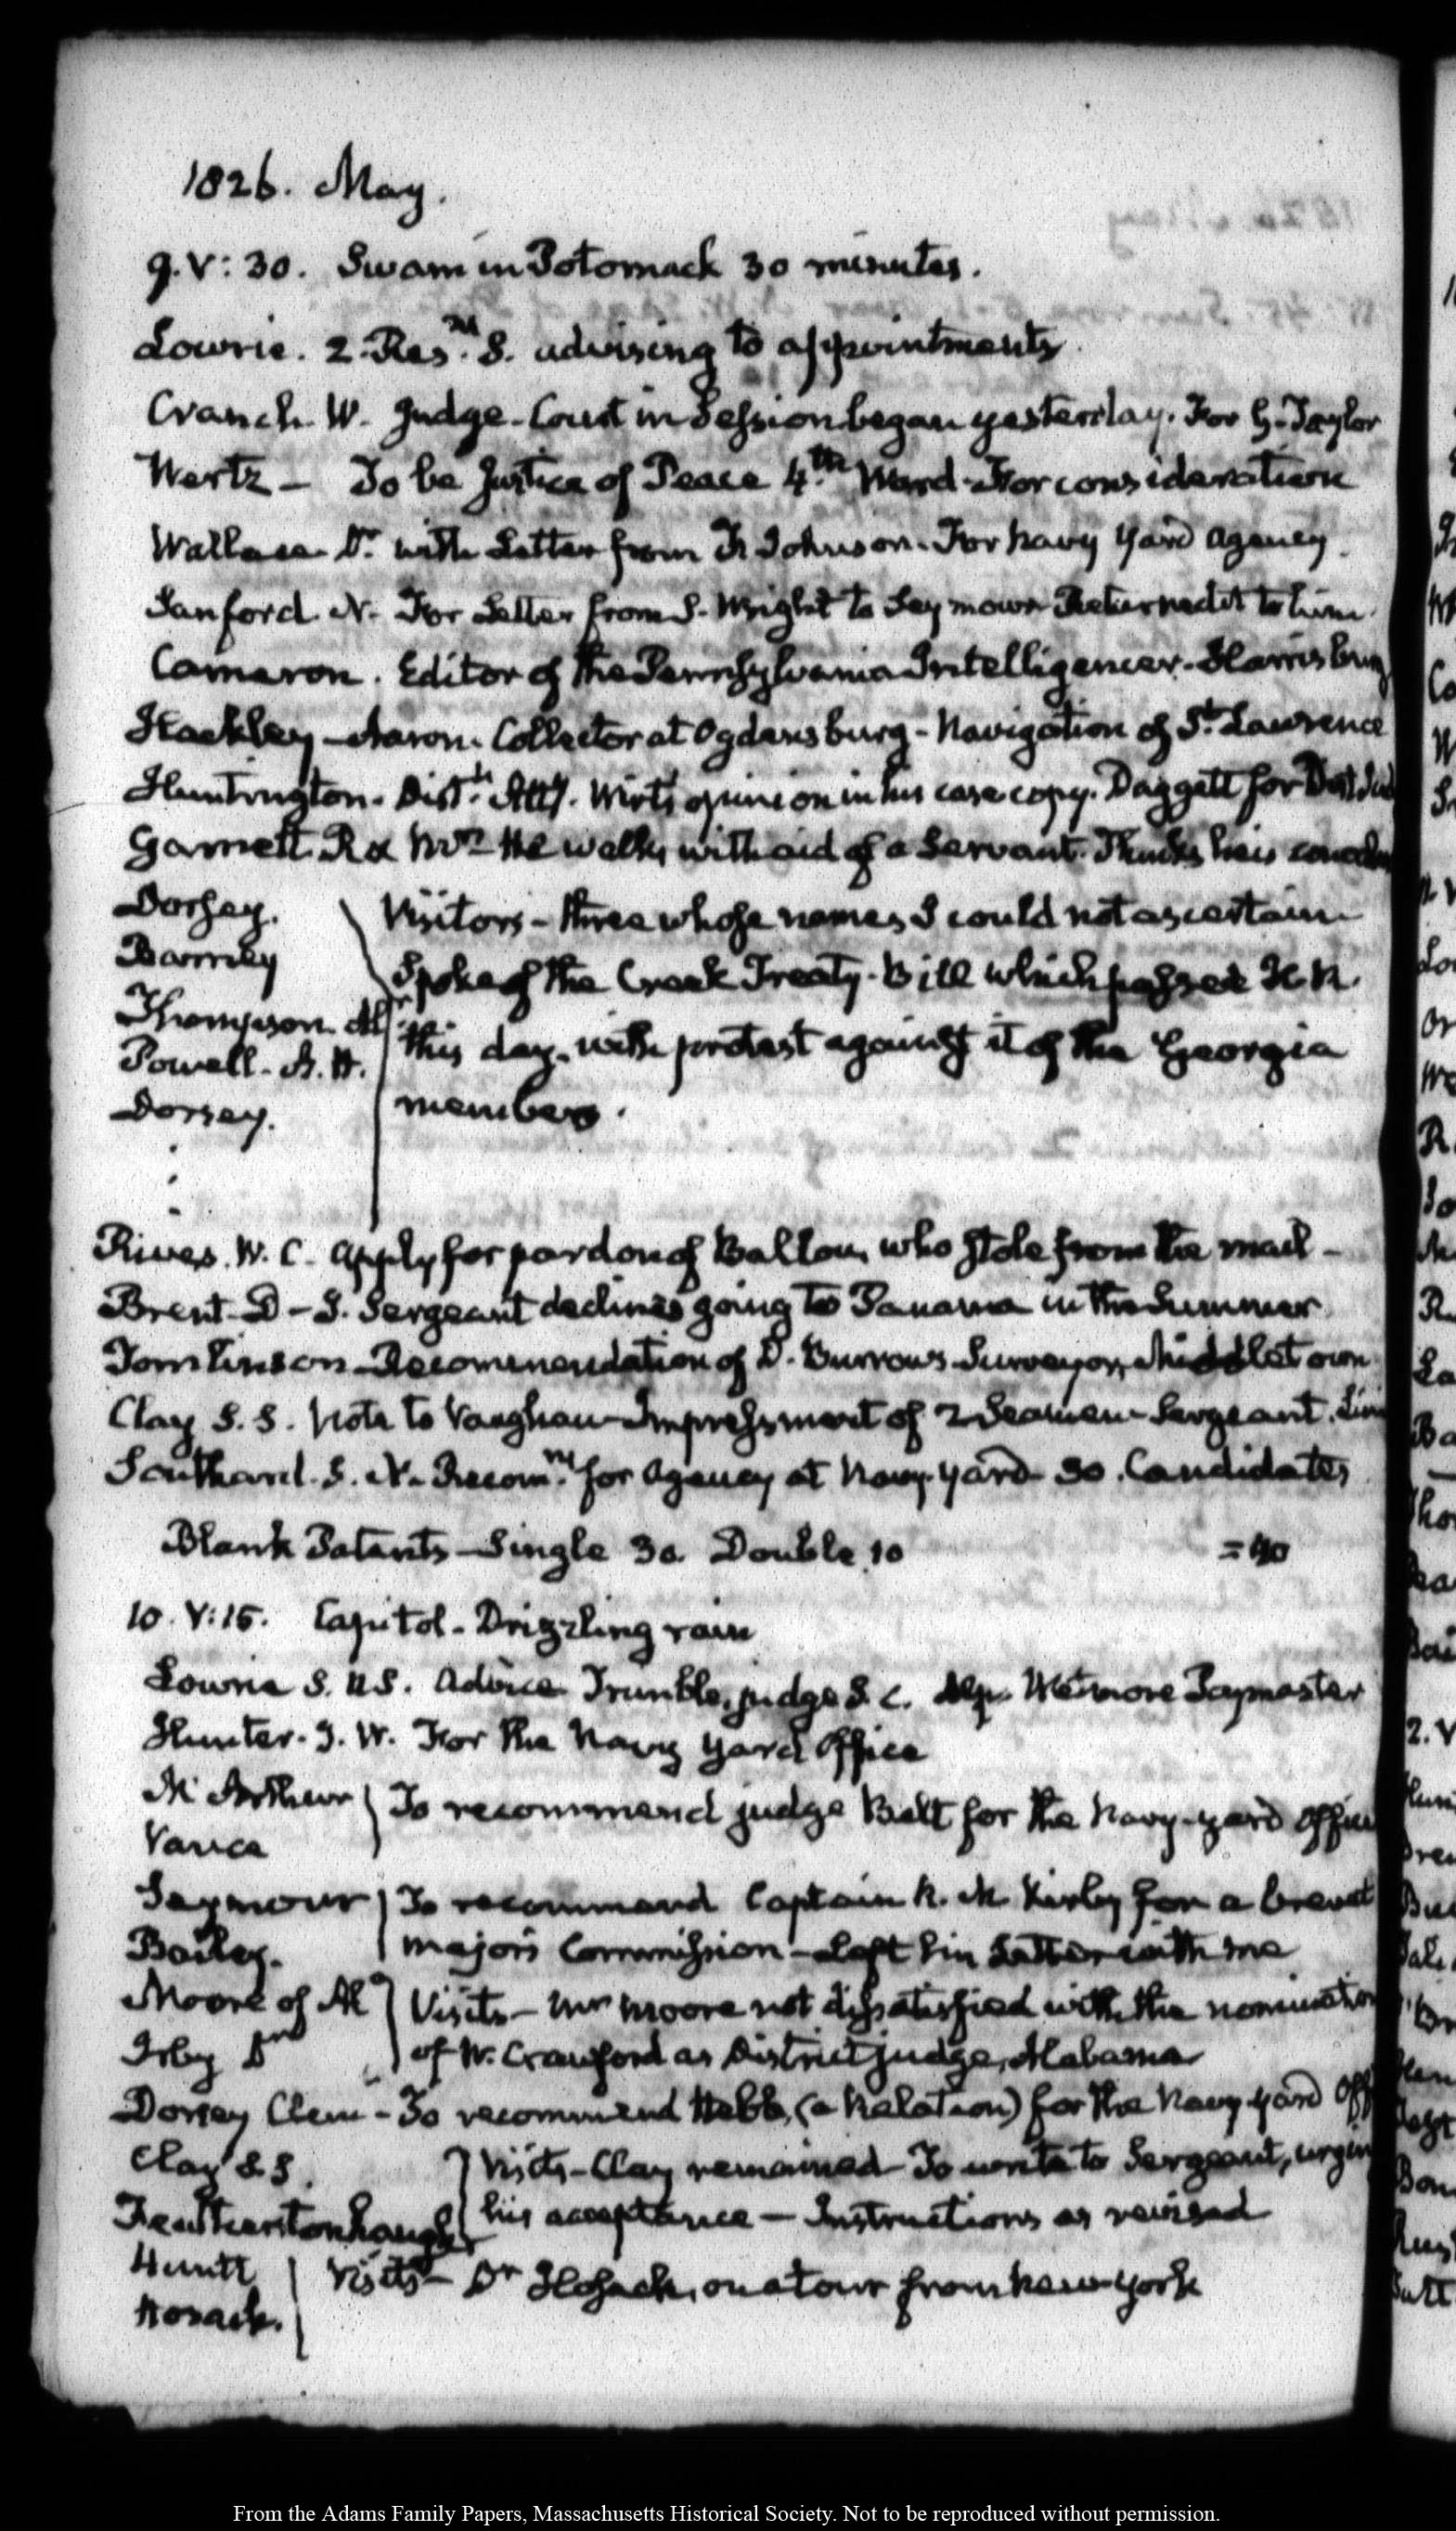 1826. May.
9. V: 30. Swam in Potomack 30 minutes.
Lowrie. 2. Resns. S. advising to appointments
Cranch W. Judge. Court in Session began yesterday. For G. Taylor
Wertz — To be Justice of Peace 4th Ward. For consideration
Wallace Dr. with Letter from F. Johnson. For Navy Yard agency.
Sanford N. For Letter from S. Wright to Seymour. Returned it to him.
Cameron. Editor of the Pennsylvania Intelligencer. Harrisburg
Hackley — Aaron. Collector at Ogdensburg — Navigation of St. Lawrence
Huntington. Distt. Atty. Wirt's opinion in his case copy. Daggett for Dist Jud
Garnett R & Mrs. He walks with aid of a Servant. Thinks he is
Dorsey.
Barney
Thompson Al
Powell. A. H.
Dorsey.
Visitors — three whose names I could not ascertain
Spoke of the Creek Treaty. Bill which passed H. R.
this day. with protest against it of the Georgia
members.
Rives. W. C. apply for pardon of Ballou, who stole from the mail —
Brent D — J. Sergeant declines going to Panama in the Summer
Tomlinson — Recommendation of D. Burrows Surveyor, Middletown
Clay S. S. Note to Vaughan — Impressment of 2 Seamen — Sergeant.
Southard. S. N. Recomns. for Agency at Navy-Yard. 30. Candidates
Blank Patents — Single 30. Double. 10 = 40
10. V: 15. Capitol — Drizzling rain
Lowrie S. U S. Advice Trimble, judge S. C. Wetmore Paymaster
Hunter. J. W. For the Navy Yard Office
McArthur
Vance
To recommend judge Belt for the Navy-yard Office
Seymour
Bailey.
To recommend Captain R. M. Kirby for a brevet
major's Commission — Left his Letter with me
Moore of Ala
Irby Dr
Visits — Mr Moore not dissatisfied with the nomination
of W. Crawford as District judge, Alabama
Dorsey Clem — To recommend Hebb, (a Relation) for the Navy-yard Off
Clay S. S.
Featherstonhaugh
Visits — Clay remained To write to Sergeant, urging
his acceptance — Instructions as revised
Huntt
Hosack.
Visits — Dr Hosack, on a tour from New-York
From the Adams Family Papers, Massachusetts Historical Society. Not to be reproduced without permission.